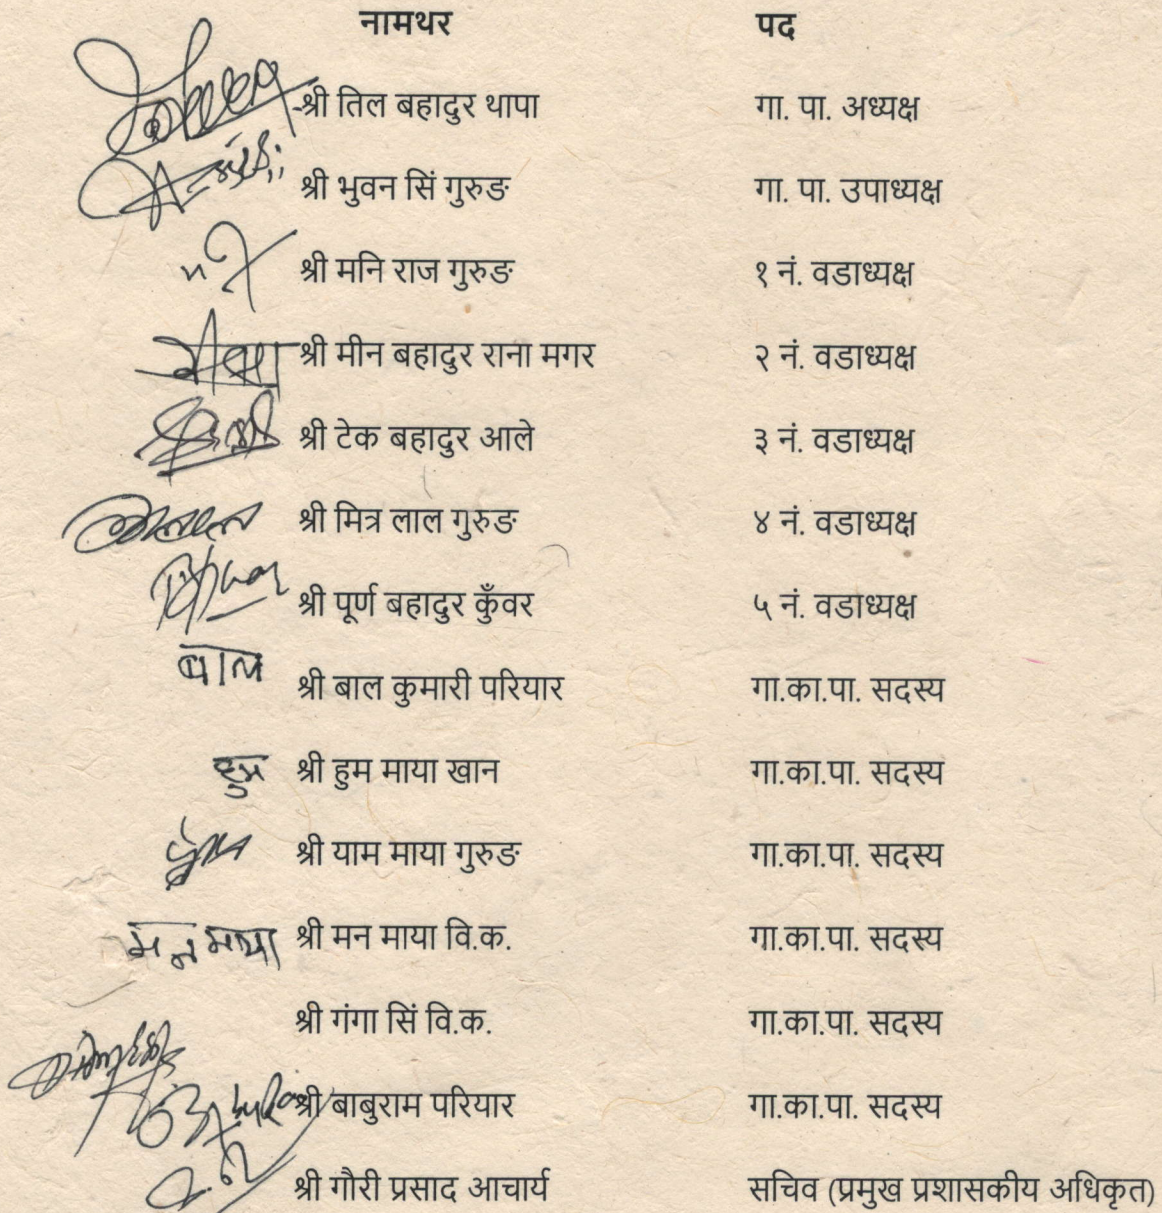 नामथर पद
श्री तिल बहादुर थापा गा. पा. अध्यक्ष
श्री भुवन सिं गुरुङ गा. पा. उपाध्यक्ष
श्री मनि राज गुरुङ १ नं. वडाध्यक्ष
श्री मीन बहादुर राना मगर २ नं. वडाध्यक्ष
श्री टेक बहादुर आले ३ नं. वडाध्यक्ष
श्री मित्र लाल गुरुङ ४ नं. वडाध्यक्ष
श्री पूर्ण बहादुर कुँवर ५ नं. वडाध्यक्ष
बाल श्री बाल कुमारी परियार गा.का.पा. सदस्य
हुम श्री हुम माया खान गा.का.पा. सदस्य
श्री याम माया गुरुङ गा.का.पा. सदस्य
मन माया श्री मन माया वि.क. गा.का.पा. सदस्य
श्री गंगा सिं वि.क. गा.का.पा. सदस्य
श्री बाबुराम परियार गा.का.पा. सदस्य
श्री गौरी प्रसाद आचार्य सचिव (प्रमुख प्रशासकीय अधिकृत)